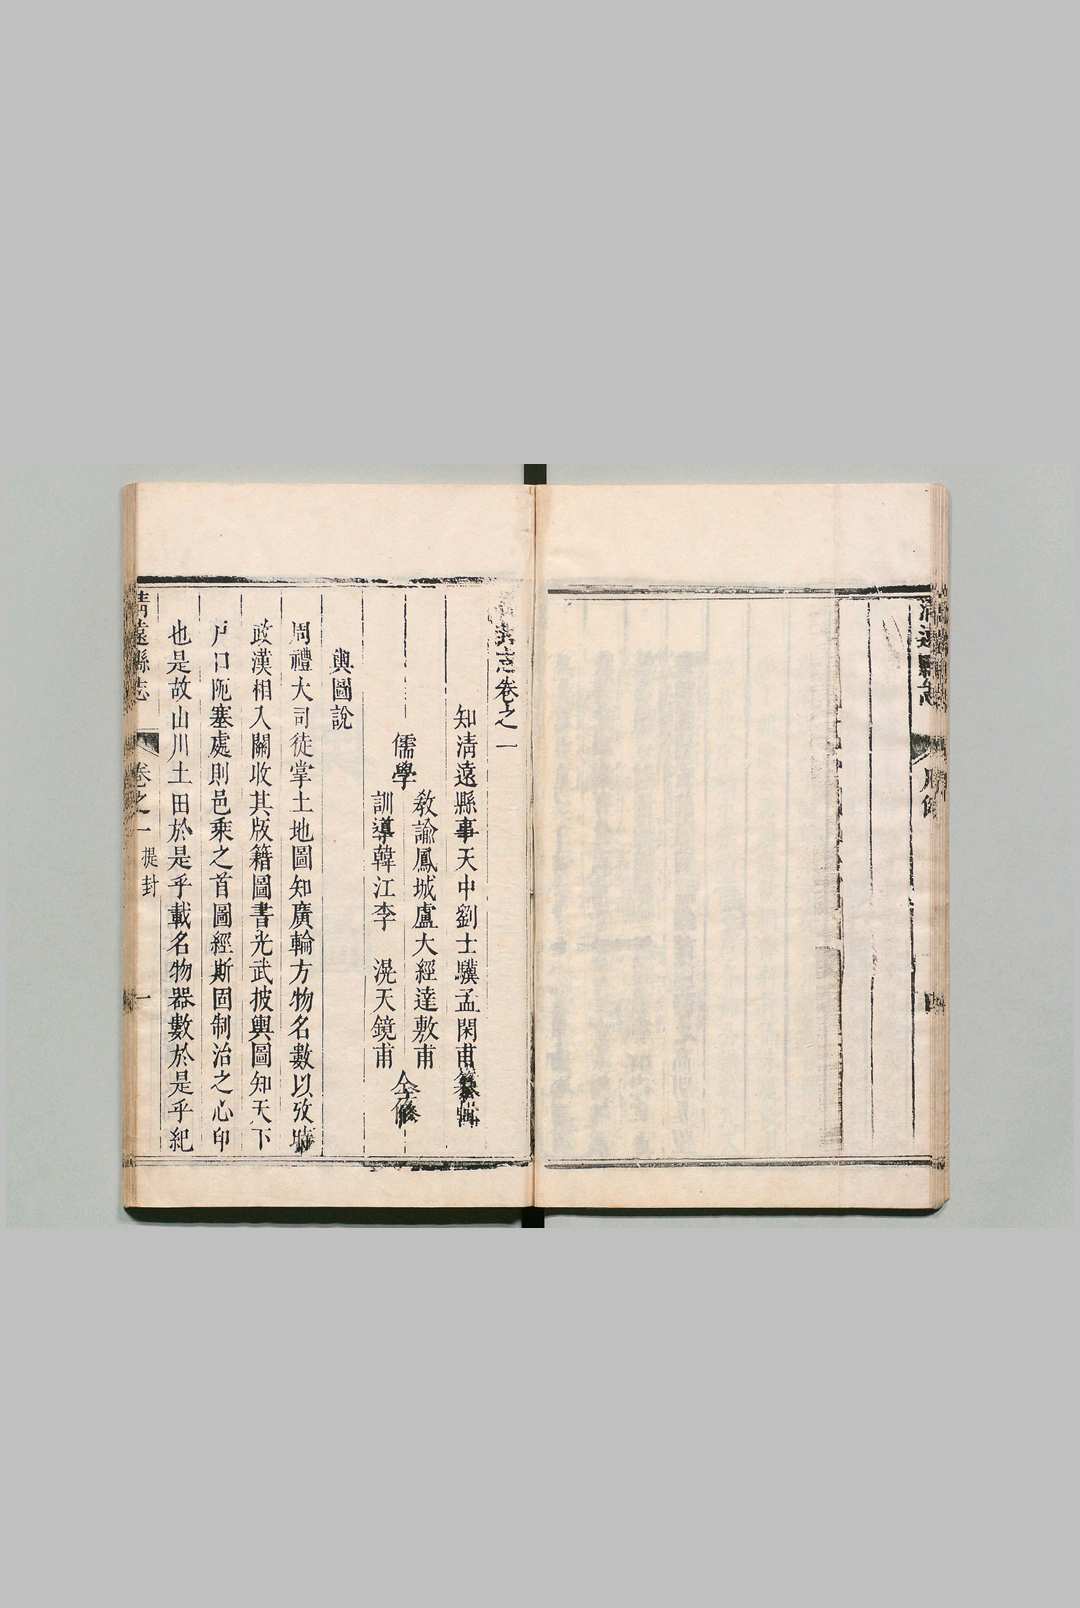 清遠縣志
志卷之一
知清遠縣事天中劉士驥孟閑甫纂
儒學
教諭鳳城盧大經達敷甫
訓導韓江李 滉天鏡甫
仝修
輿圖說
周禮大司徒掌土地圖知廣輪方物名數以攷
政漢相入關收其版籍圖書光武披輿圖知天下
戶口阨塞處則邑乘之首圖經斯固制治之心印
也是故山川土田於是乎載名物器數於是乎紀
清遠縣志 卷之一 提封 一